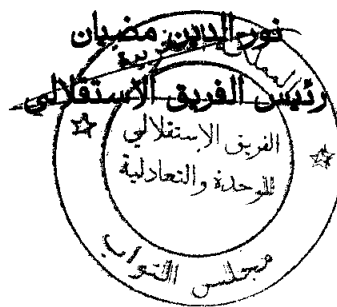 نور الدين مضيان
رئيس الفريق الاستقلالي
الفريق الإستقلالي
للوحدة والتعادلية
مجلس النواب